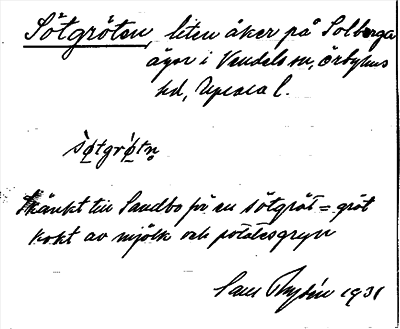 Sötgröten, liten åker på Solberga
ägor i Vendels sn, Örbyhus
hd, Uppsala l.
sø̀tgrø̀tn̥
Skänkt till Sandbo för en sötgröt = gröt
kokt av mjölk och potatisgryn
1931